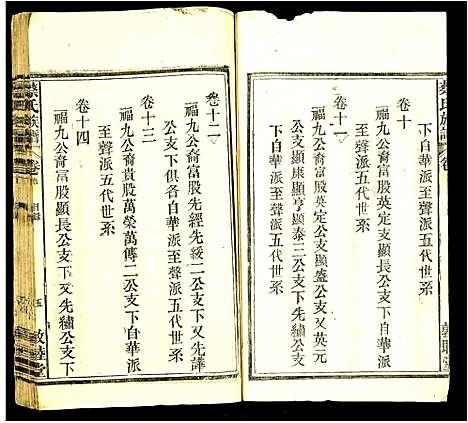 下自華派至聲派五代世系
卷十
福九公裔富股英定支顯長公支下自華派
至聲派五代世系
卷十一
福九公裔富股英定公支顯盛公支又英元
公支顯康顯亨顯泰三公支下又先繡公支
下自華派至聲派五代世系
卷十二
福九公裔富股先經先綬二公支下又先譁
公支下俱各自華派至聲派五代世系
卷十三
福九公裔貴股萬榮萬傳二公支下自華派
至聲派五代世系
卷十四
福九公裔富股顯長公支下又先繡公支下
蔡氏族譜
卷
目錄
五
敦睦堂